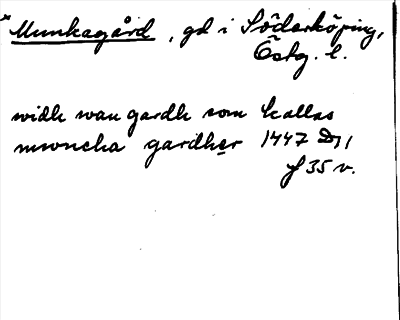 *Munkagård, gd i Söderköping,
Östg. l.
widh wan gardh som kallas
mwncka gardher 1447 D11
f 35 v.